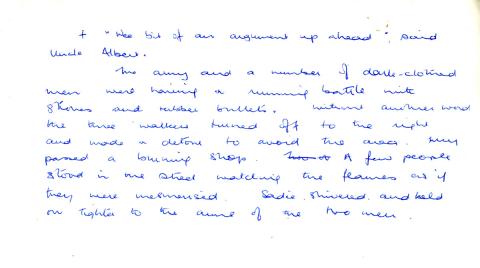 + "Wee bit of an argument up ahead", said
Uncle Albert.
The army and a number of dark-clothed
men were having a running battle with
stones and rubber bullets. Without another word
the three walkers turned off to the right
and made a detour to avoid the area. They
passed a burning shop. A few people
stood in the street watching the flames as if
they were mesmerised. Sadie shivered and held
on tighter to the arms of the two men.